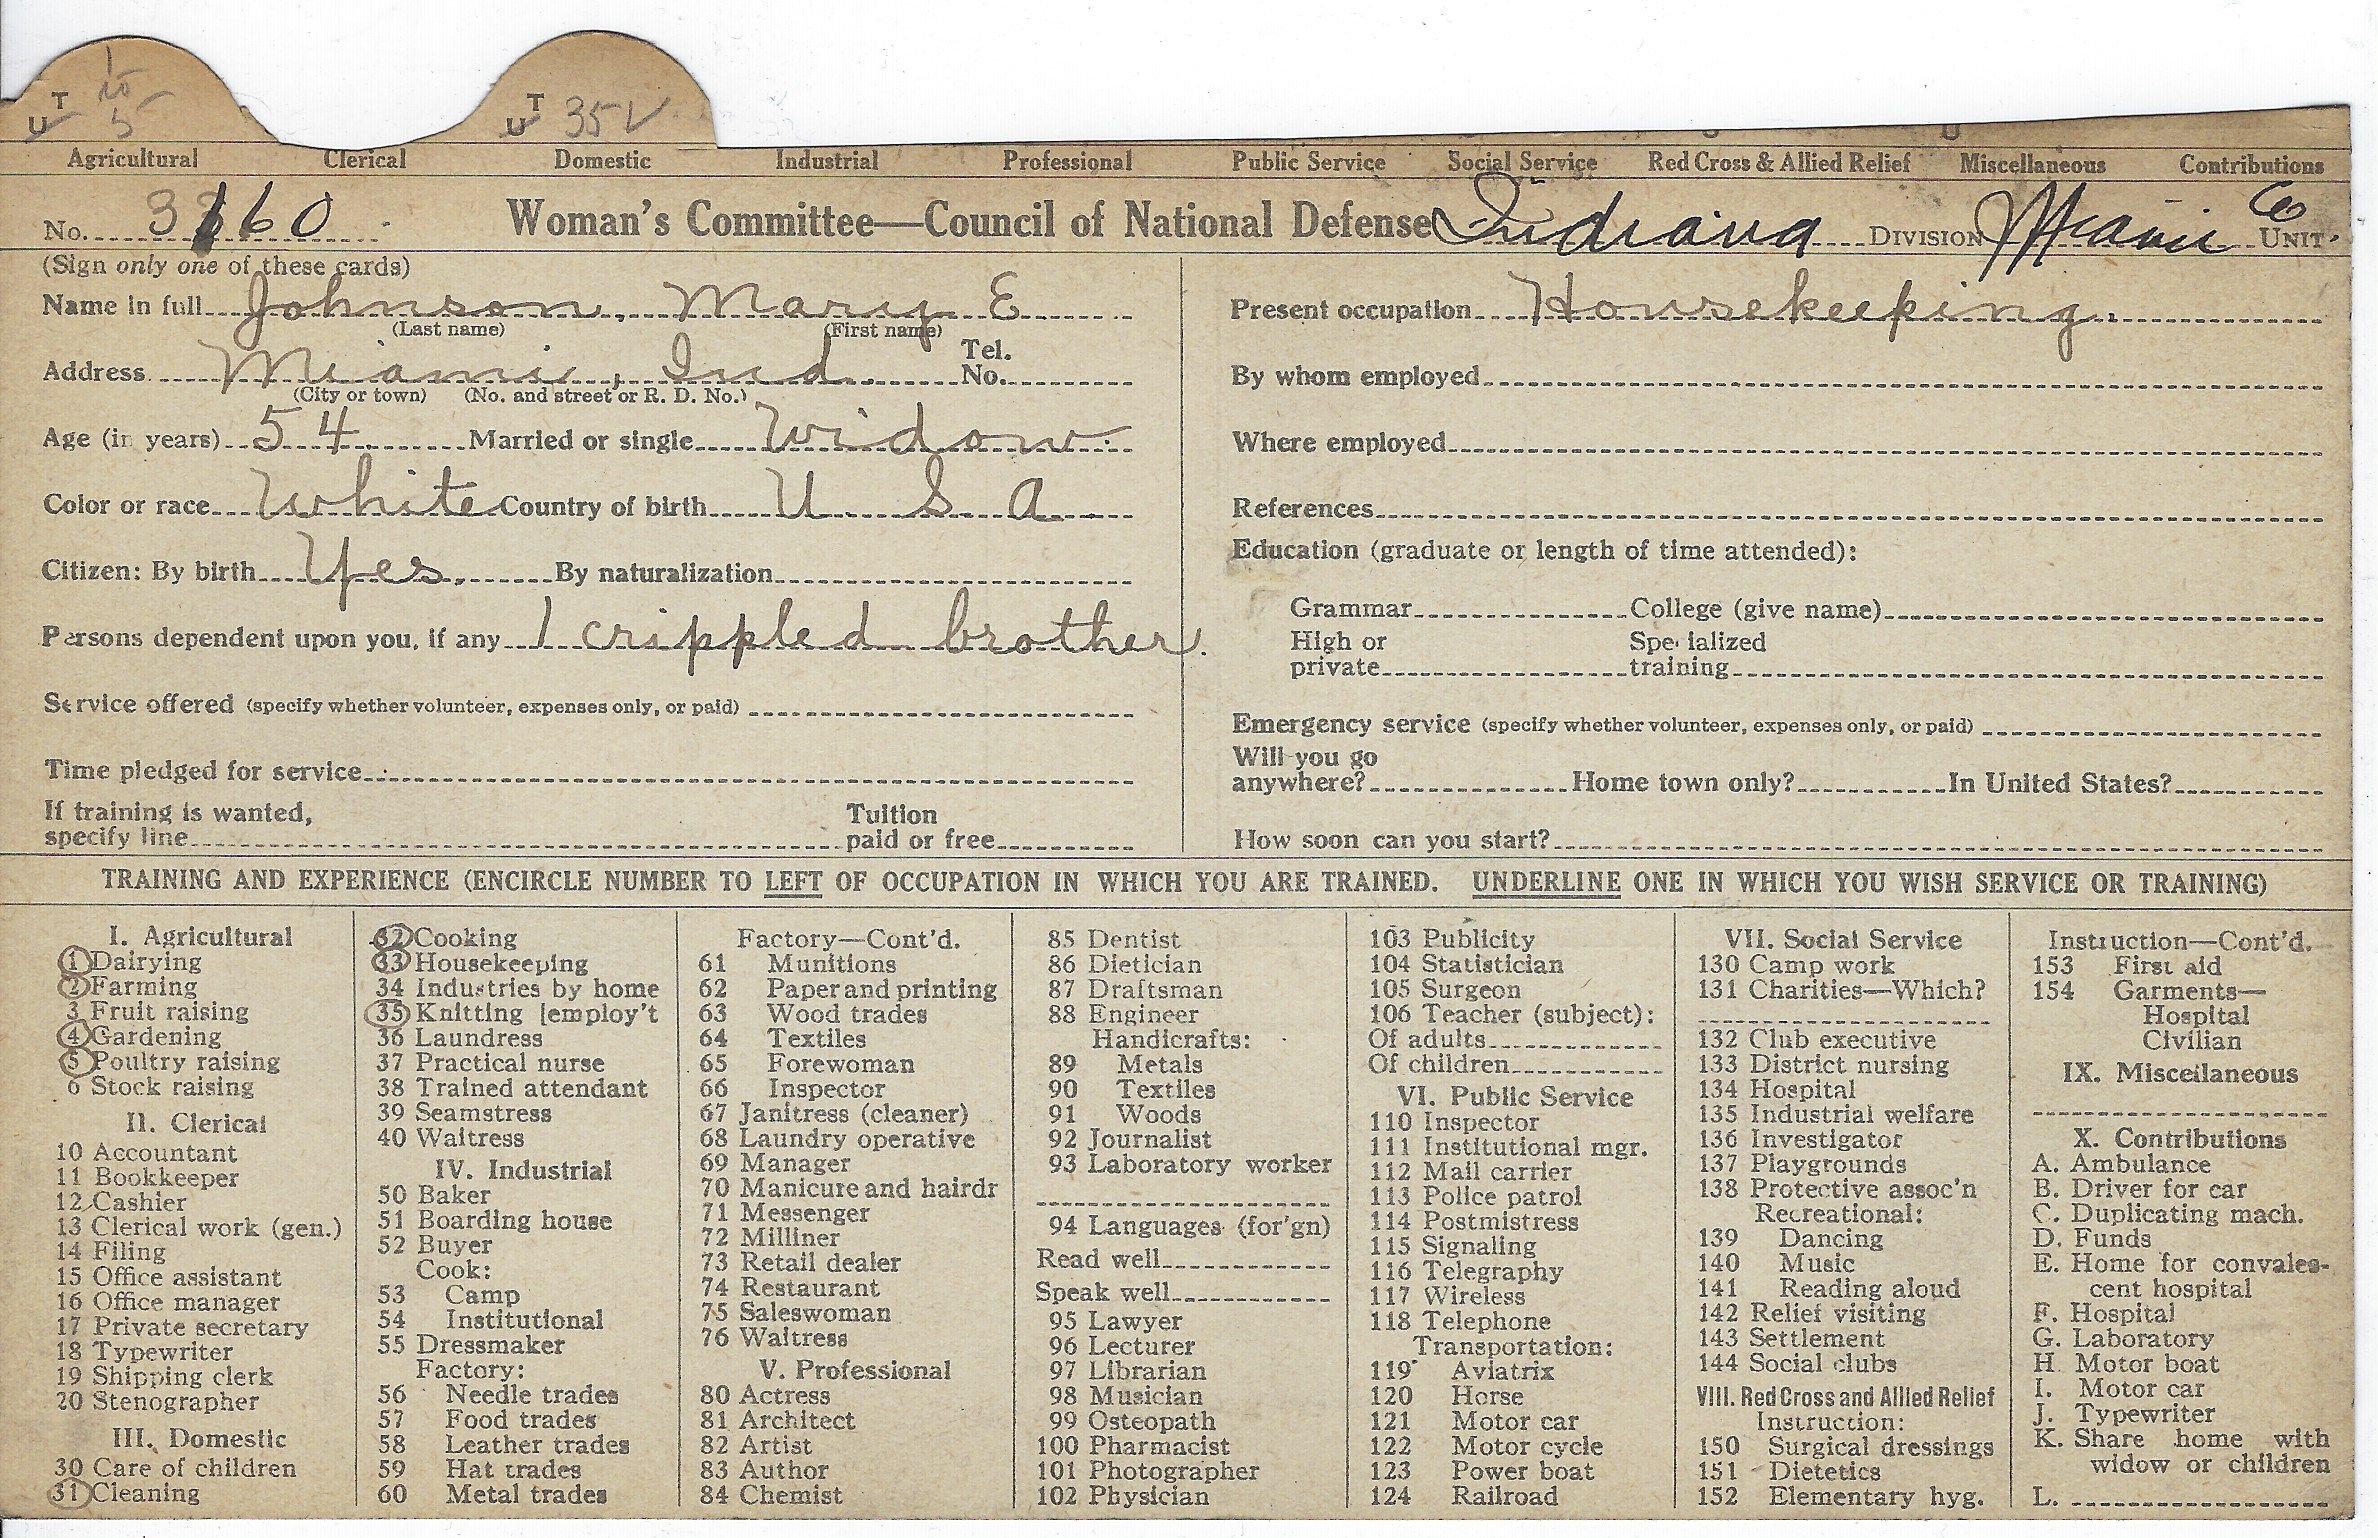 T
U
5
T
U 35 V
Agricultural Clerical Domestic Industrial Professional Public Service Social Service Red Cross & Allied Relief Miscellaneous Contributions
No. 3160 Woman's Committee—Council of National Defense Indiana DIVISION Miami Co UNIT.
(Sign only one of these cards)
Name in full Johnson, Mary E
(Last name) (First name)
Address Miami, Ind. Tel. No.
(City or town) (No. and street or R. D. No.)
Age (in years) 54. Married or single Widow.
Color or race White Country of birth U. S. A.
Citizen: By birth Yes. By naturalization
Persons dependent upon you, if any 1 crippled brother.
Service offered (specify whether volunteer, expenses only, or paid)
Time pledged for service
If training is wanted,
specify line Tuition paid or free
Present occupation Housekeeping.
By whom employed
Where employed
References
Education (graduate or length of time attended):
Grammar College (give name)
High or private Specialized training
Emergency service (specify whether volunteer, expenses only, or paid)
Will you go
anywhere? Home town only? In United States?
How soon can you start?
TRAINING AND EXPERIENCE (ENCIRCLE NUMBER TO LEFT OF OCCUPATION IN WHICH YOU ARE TRAINED. UNDERLINE ONE IN WHICH YOU WISH SERVICE OR TRAINING)
I. Agricultural
1 Dairying
2 Farming
3 Fruit raising
4 Gardening
5 Poultry raising
6 Stock raising
II. Clerical
10 Accountant
11 Bookkeeper
12 Cashier
13 Clerical work (gen.)
14 Filing
15 Office assistant
16 Office manager
17 Private secretary
18 Typewriter
19 Shipping clerk
20 Stenographer
III. Domestic
30 Care of children
31 Cleaning
32 Cooking
33 Housekeeping
34 Industries by home
35 Knitting [employ't
36 Laundress
37 Practical nurse
38 Trained attendant
39 Seamstress
40 Waitress
IV. Industrial
50 Baker
51 Boarding house
52 Buyer
Cook:
53 Camp
54 Institutional
55 Dressmaker
Factory:
56 Needle trades
57 Food trades
58 Leather trades
59 Hat trades
60 Metal trades
Factory—Cont'd.
61 Munitions
62 Paper and printing
63 Wood trades
64 Textiles
65 Forewoman
66 Inspector
67 Janitress (cleaner)
68 Laundry operative
69 Manager
70 Manicure and hairdr
71 Messenger
72 Milliner
73 Retail dealer
74 Restaurant
75 Saleswoman
76 Waitress
V. Professional
80 Actress
81 Architect
82 Artist
83 Author
84 Chemist
85 Dentist
86 Dietician
87 Draftsman
88 Engineer
Handicrafts:
89 Metals
90 Textiles
91 Woods
92 Journalist
93 Laboratory worker
94 Languages (for'gn)
Read well
Speak well
95 Lawyer
96 Lecturer
97 Librarian
98 Musician
99 Osteopath
100 Pharmacist
101 Photographer
102 Physician
103 Publicity
104 Statistician
105 Surgeon
106 Teacher (subject):
Of adults
Of children
VI. Public Service
110 Inspector
111 Institutional mgr.
112 Mail carrier
113 Police patrol
114 Postmistress
115 Signaling
116 Telegraphy
117 Wireless
118 Telephone
Transportation:
119 Aviatrix
120 Horse
121 Motor car
122 Motor cycle
123 Power boat
124 Railroad
VII. Social Service
130 Camp work
131 Charities—Which?
132 Club executive
133 District nursing
134 Hospital
135 Industrial welfare
136 Investigator
137 Playgrounds
138 Protective assoc'n
Recreational:
139 Dancing
140 Music
141 Reading aloud
142 Relief visiting
143 Settlement
144 Social clubs
VIII. Red Cross and Allied Relief
Instruction:
150 Surgical dressings
151 Dietetics
152 Elementary hyg.
Instruction—Cont'd.
153 First aid
154 Garments—
Hospital
Civilian
IX. Miscellaneous
X. Contributions
A. Ambulance
B. Driver for car
C. Duplicating mach.
D. Funds
E. Home for convales-
cent hospital
F. Hospital
G. Laboratory
H. Motor boat
I. Motor car
J. Typewriter
K. Share home with
widow or children
L.